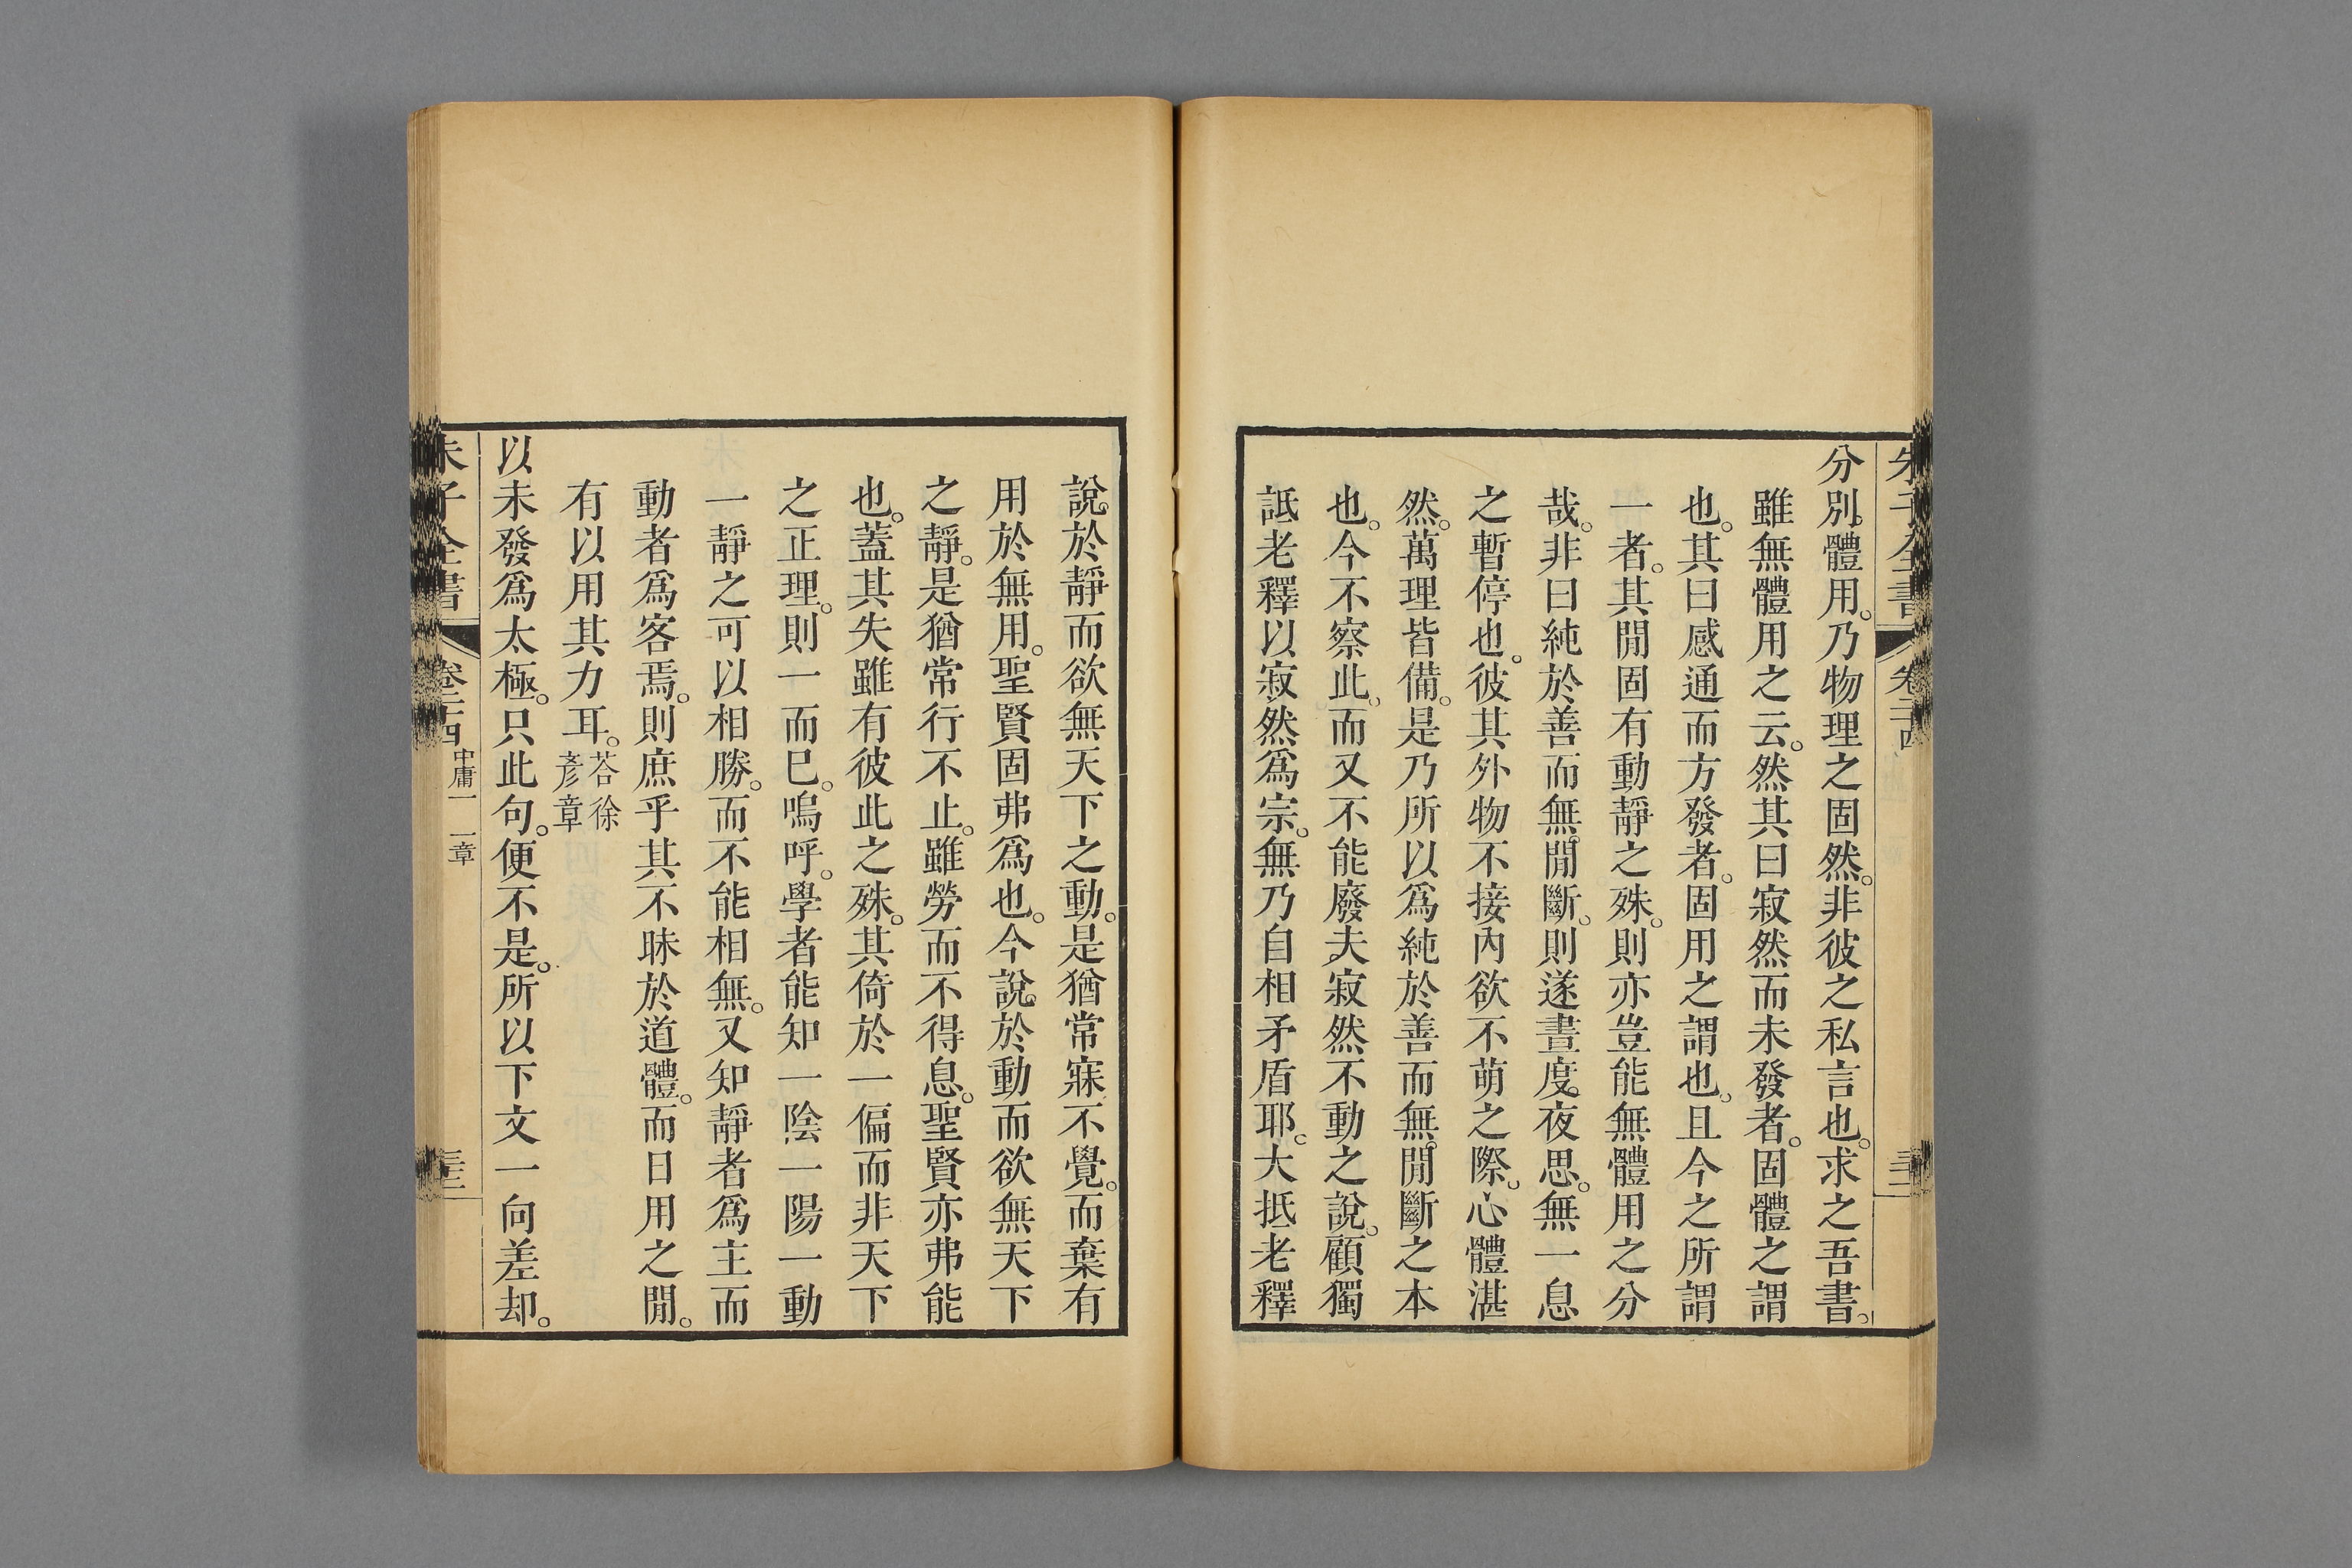 朱子全書
卷二十四
分別。體用。乃物理之固然。非彼之私言也。求之吾書。
雖無體用之云。然其曰寂然而未發者。固體之謂
也。其曰感通而方發者。固用之謂也。且今之所謂
一者。其閒固有動靜之殊。則亦豈能無體用之分
哉。非曰純於善而無。閒斷。則遂晝度。夜思。無一息
之暫停也。彼其外物不接內欲不萌之際。心體湛
然。萬理皆備。是乃所以爲純於善而無。閒斷之本
也。今不察此。而又不能廢夫寂然不動之說。顧獨
詆老釋以寂然爲宗。無乃自相矛盾耶。大抵老釋
說。於靜而欲無天下之動。是猶常寐不覺。而棄有
用於無用。聖賢固弗爲也。今說。於動而欲無天下
之靜。是猶常行不止。雖勞而不得息。聖賢亦弗能
也。蓋其失雖有彼此之殊。其倚於一偏而非天下
之正理。則一而巳。嗚呼。學者能知一陰一陽一動
一靜之可以相勝。而不能相無。又知靜者爲主而
動者爲客焉。則庶乎其不昧於道體。而日用之閒。
有以用其力耳。荅徐彥章
以未發爲太極。只此句。便不是。所以下文一向差却。
朱子全書
卷二十四
中庸一 一章